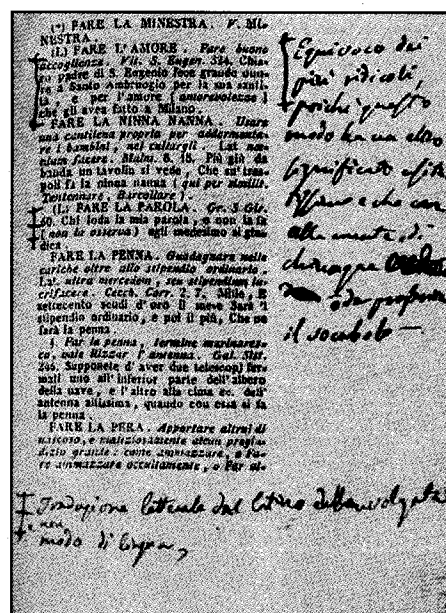 (*) FARE LA MINESTRA. V. MI-
NESTRA.
(L) FARE L'AMORE. Fare buone
accoglienze. Vit. S. Eugen. 384. Chia-
padre di S. Eugenio fece grande ono-
re a Santo Ambruogio per la sua santi-
tà, e per l'amore (amorevolezza)
che gli avea fatto a Milano.
FARE LA NINNA NANNA. Usare
una cantilena propria per addormenta-
re i bambini, nel cullargli. Lat.
nium facere. Malm. 6. 15. Più giù da
banda un tavolin si vede, Che su' tram-
poli fa la ninna nanna (qui per similit.
Tentennare, Barcollare).
(L) FARE LA PAROLA. Gr. S. Gir.
60. Chi loda la mia parola, e non la fa
(non la osserva) egli medesimo si giu-
dica.
FARE LA PENNA. Guadagnare nelle
cariche oltre allo stipendio ordinario.
Lat. ultra mercedem, seu stipendium lu-
crifacere. Cecch. Corr. 2. 7. Mille, E
settecento scudi d'oro il mese Sarà l
stipendio ordinario, e poi il più, Che ne
farà la penna.
§. Far la penna, termine marinares-
co, vale Rizzar l'antenna. Gal. Sist.
246. Supponete d'aver due telescopj fer-
mati uno all'inferior parte dell'albero
della nave, e l'altro alla cima ec. dell'
antenna altissima, quando con essa si fa
la penna.
FARE LA PERA. Apportare altrui di
nascoso, e maliziosamente alcun pregiu-
dizio grande: come ammazzare, o Fa-
re ammazzare occultamente, o Far al-
Equivoco dei
più ridicoli,
poichè questo
modo ha un altro
significato
e che
alla mente di
chiunque
oda
il vocabolo —
Traduzione letterale dal latino della volgata
e non
modo di lingua,